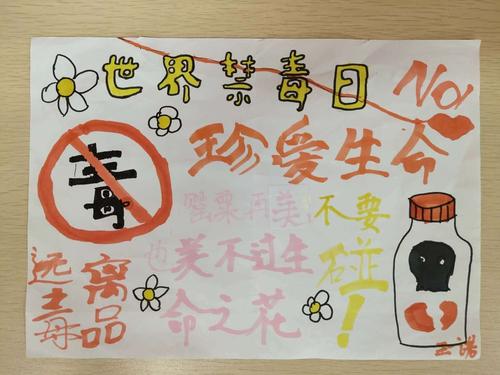 世界禁毒日
No!
珍爱生命
毒
罂粟再美
也美不过生
命之花
不要
碰！
远离
毒品